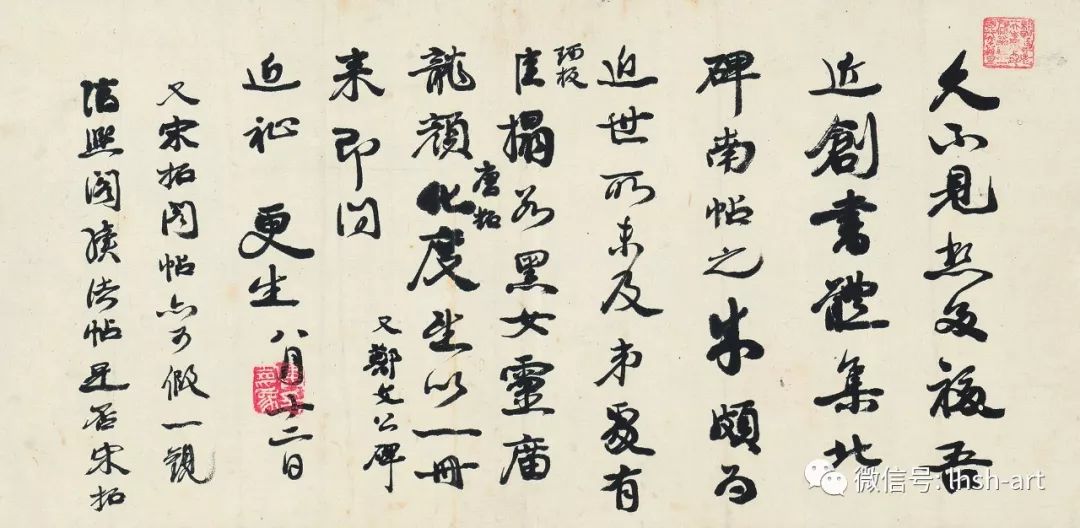 久不見想多福吾
近創書體集北
碑南帖之成頗為
近世所未及弟處有
佳搨如黑女靈廟
龍顏化度唐拓望以一冊
來即問
又鄭文公碑
近祉 更生 八月十二日
又宋拓閣帖亦可假一觀
淳熙閣續法帖是否宋拓
微信号: lhsh-art